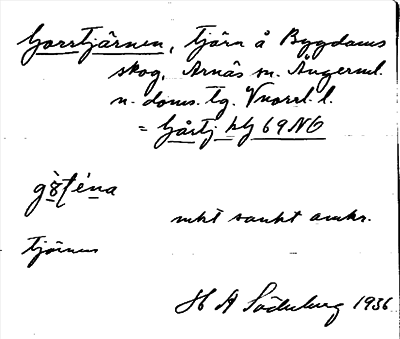 Gorrtjärnen, tjärn å Bygdams
skog, Arnäs sn. Ångerml.
n. doms. tg. Vnorrl. l.
= Gårtj hg 69 NO
mkt sankt omkr.
tjärnen
H A Söderberg 1936